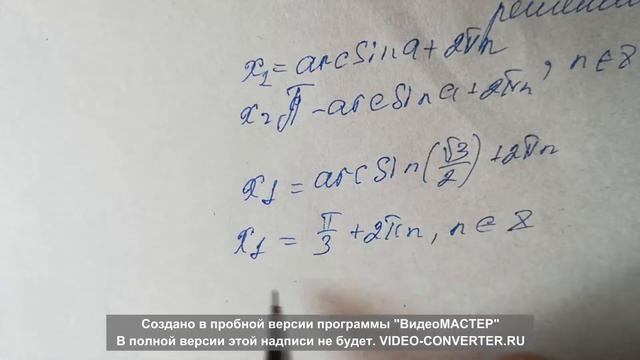 решения
x₁ = arcsin a + 2πn
x₂ π - arcsin a + 2πn, n ∈ Z
x₁ = arcsin(√3/2) + 2πn
x₁ = π/3 + 2πn, n ∈ Z
Создано в пробной версии программы "ВидеоМАСТЕР"
В полной версии этой надписи не будет. VIDEO-CONVERTER.RU